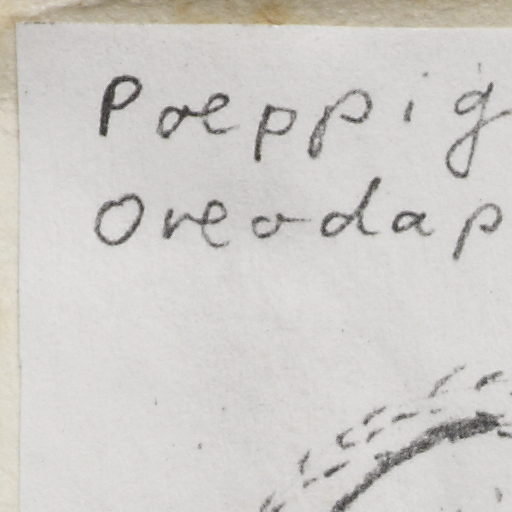 Poeppig
Oreodap